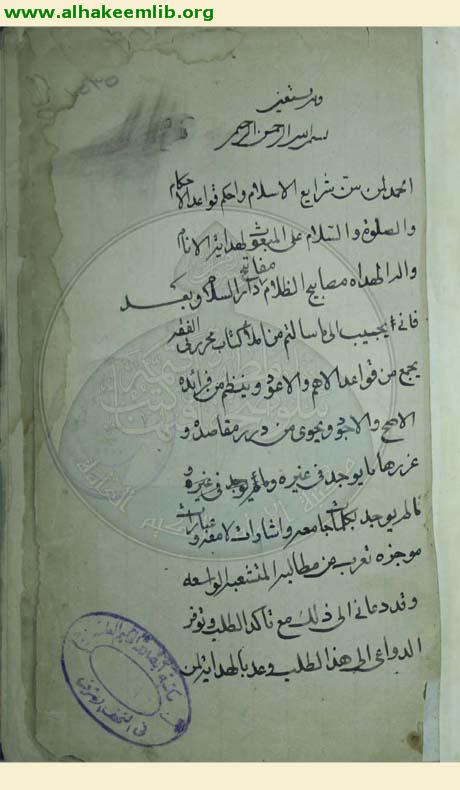 www.alhakeemlib.org
وبه نستعين
بسم الله الرحمن الرحيم
الحمد لمن سن شرايع الاسلام واحكم قواعد الاحكام
والصلوة والسلام على المبعوث لهداية الانام
واله الهداه مصابيح الظلام مفاتيح دار السلام وبعد
فاني مجيب الى ما سالتم من املاء كتاب محرر في الفقه
يجمع من قواعد الاهم والاعود وينظم من فرائده
الاصح والاجود ويحوي من درر مقاصده و
غررها ما يوجد في غيره وما لم يوجد في غيره
بكلمات جامعه واشارات لامعه وعبارات
موجزه تعرب عن مطالبه المتشعبه الواسعه
وقد دعاني الى ذلك مع تاكد الطلب وتوفر
الدواعي الى هذا الطلب وعد بالهداية لمن
مكتبة
في النجف الاشرف